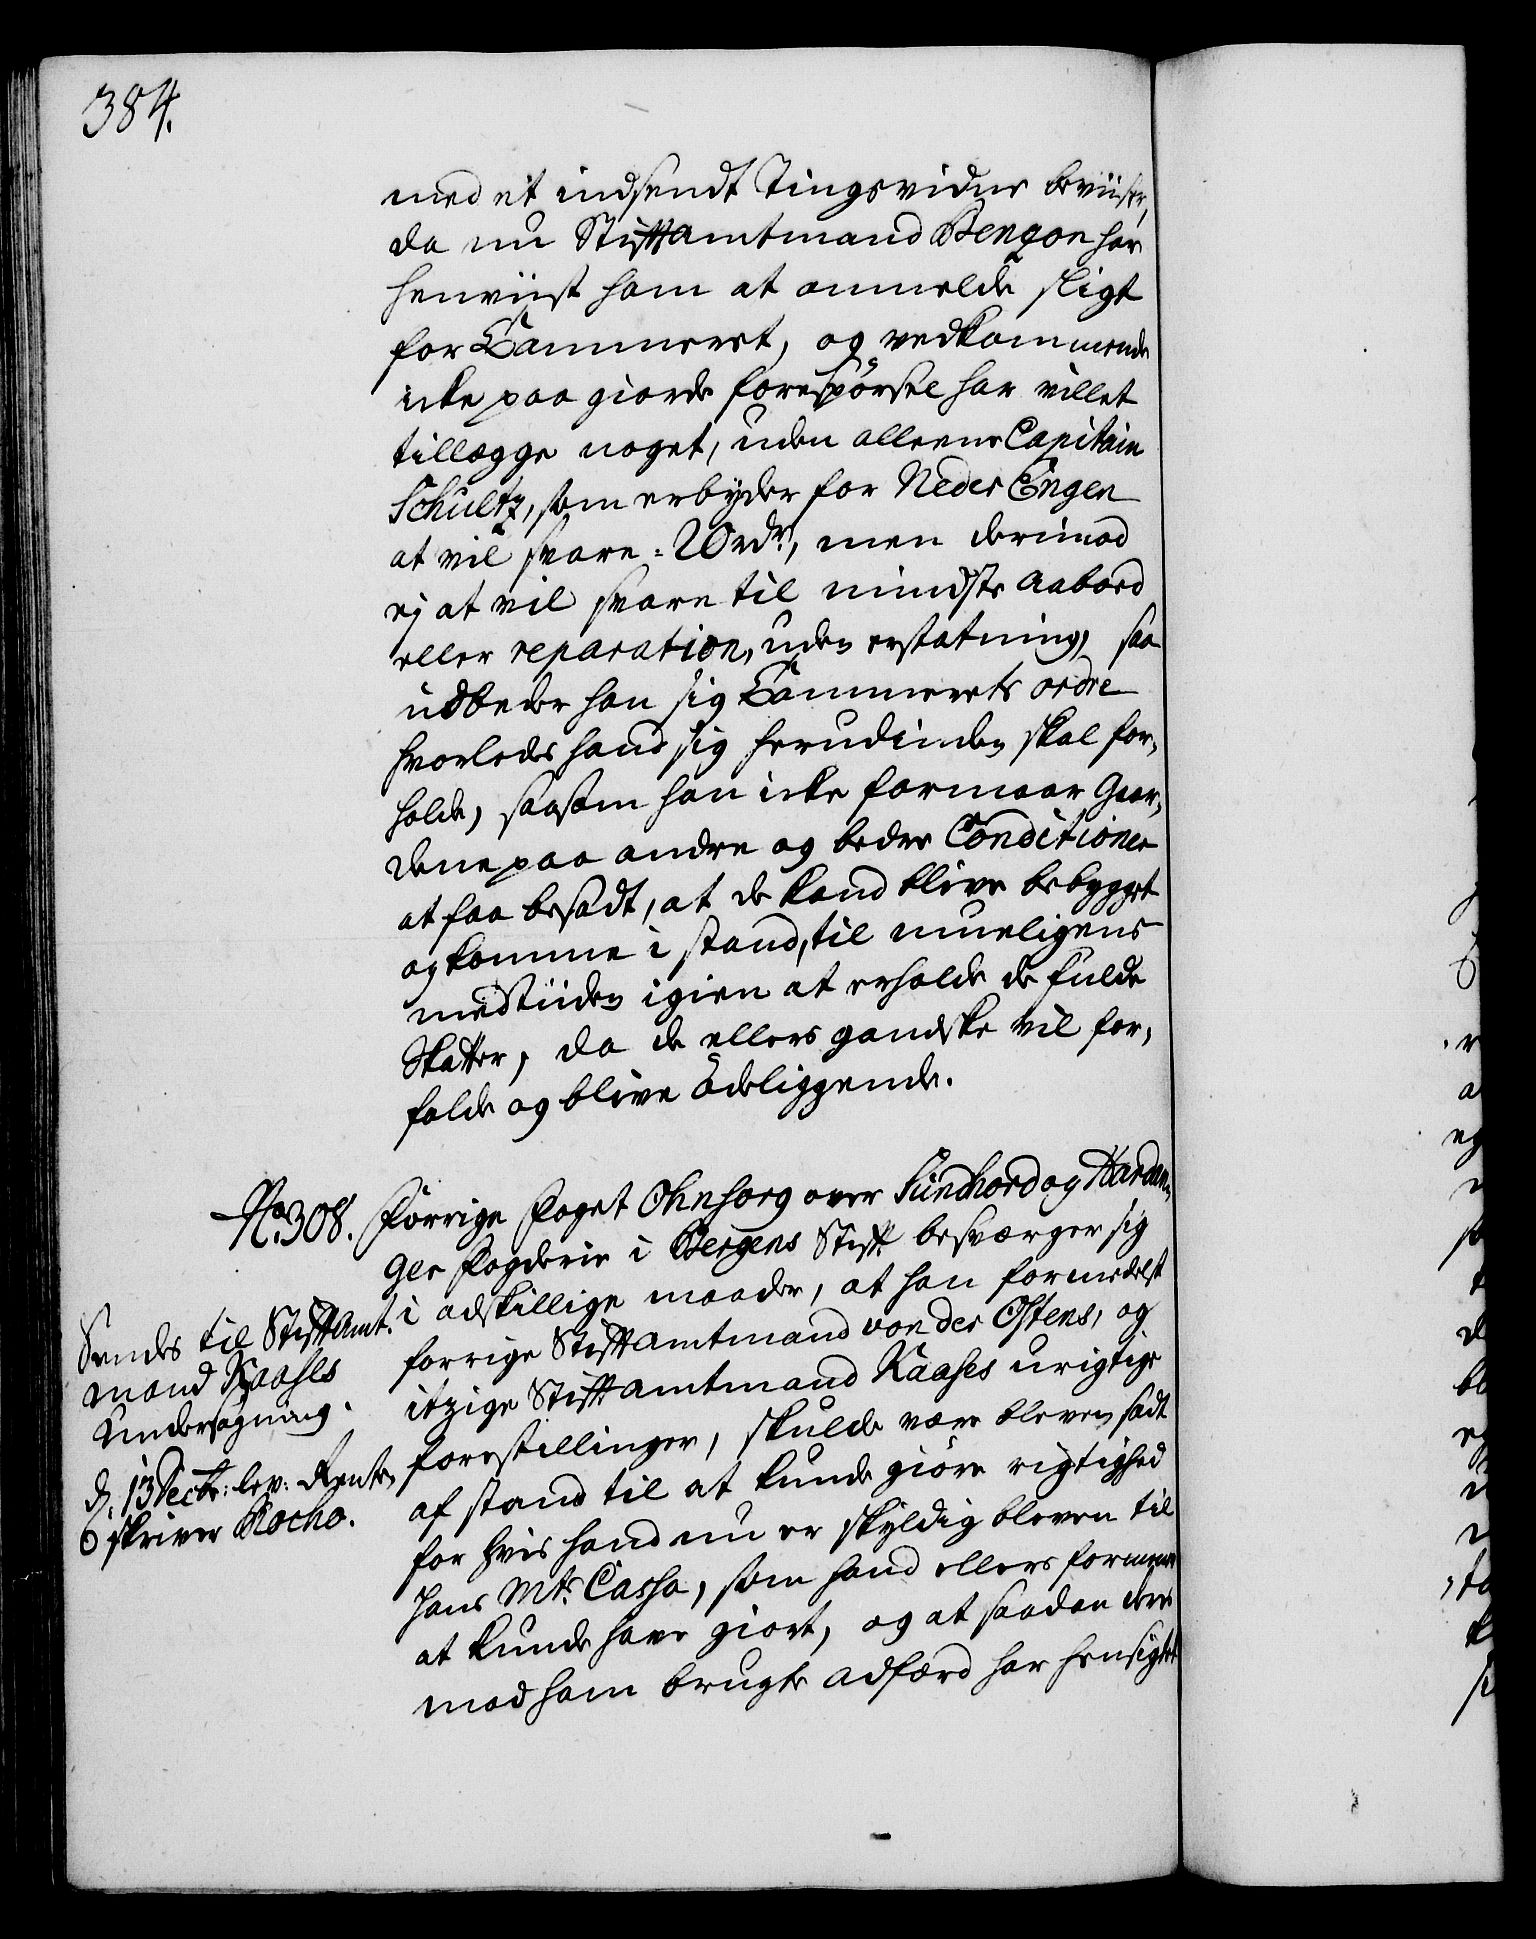 384.
med et indsendt Tingsvidne beviiser,
da nu Stiftamtmand Benzon har
henviist ham at anmelde sligt
for Cammeret, og vedkommende
icke paa giorde forespørsel har villet
tillægge noget, uden alleene Capitain
Schultz, som erbyder for Neder Engen
at vil svare = 20 rdr, men derimod
ej at vil svare til mindste Aaboed
eller reparation, uden erstatning, saa
udbeder han sig Cammerets ordre
hvorledes hand sig herudinden skal for-
holde, saasom han icke formaar Gaar-
dene paa andre og bedre Conditioner
at faa besadt, at de kand blive bebygget
og komme i stand, til mueligens
med tiiden igien at erholde de fulde
Skatter, da de ellers gandske vil for-
falde og blive ødeliggende.
No. 308. Forrige Foget Ohnsorg over Sundhord og Hardan-
ger Fogderie i Bergens Stift besværger sig
i adskillige maader, at han formedelst
forrige Stiftamtmand von der Ostens, og
itzige Stiftamtmand Kaases urigtige
forestillinger, skulde være bleven sadt
af stand til at kunde giøre rigtighed
for hvis hand nu er skyldig bleven til
Hans Mts. Cassa, som hand ellers formener
at kunde have giort, og at saadan deres
mod ham brugte adfærd har hensigtet
Sendes til Stiftamt-
mand Kaases
Undersøgning.
d. 13 Decbr: lev: Rente-
skriver Rocho.